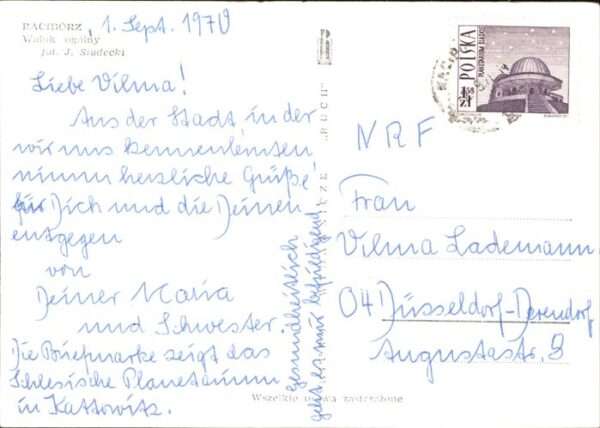 RACIBÓRZ
Widok ogólny
fot. J. Siudecki
1. Sept. 1970
Liebe Vilma!
Aus der Stadt, in der
wir uns kennenlernten
nimm herzliche Grüße
für Dich und die Deinen
entgegen
von
Deiner Maria
und Schwester.
Die Briefmarke zeigt das
Schlesische Planetarium
in Kattowitz.
gesundheitlich
geht es mir befriedigend
"RUCH"
Wszelkie prawa zastrzeżone
POLSKA
PLANETARIUM ŚLĄSKIE
1,55 ZŁ
NRF
Frau
Vilma Lademann
04 Düsseldorf-Derendorf
Augustastr. 9